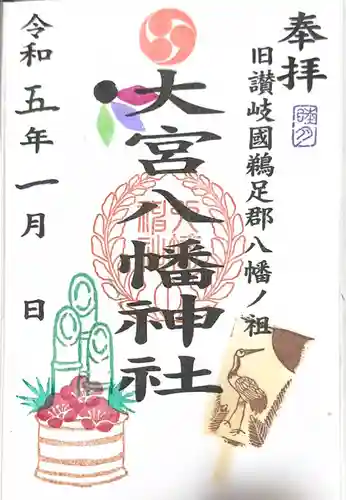 奉拝
睦月
旧讃岐國鵜足郡八幡ノ祖
大宮八幡神社
令和五年一月 日